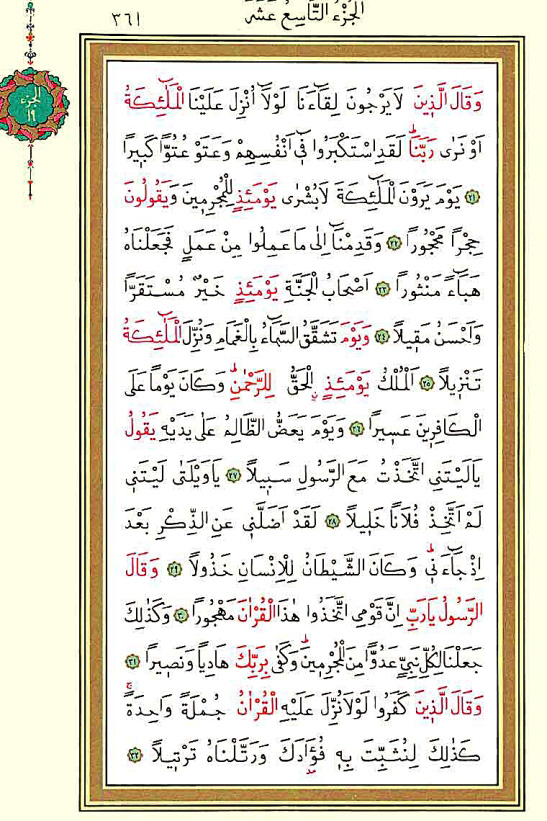 الجزء التاسع عشر
٣٦١
الجزء
١٩
وَقَالَ الَّذٖينَ لَا يَرْجُونَ لِقَٓاءَنَا لَوْلَٓا اُنْزِلَ عَلَيْنَا الْمَلٰٓئِكَةُ
اَوْ نَرٰى رَبَّنَاؕ لَقَدِ اسْتَكْبَرُوا فٖٓى اَنْفُسِهِمْ وَعَتَوْ عُتُوًّا كَبٖيرًا
﴿٢١﴾ يَوْمَ يَرَوْنَ الْمَلٰٓئِكَةَ لَا بُشْرٰى يَوْمَئِذٍ لِلْمُجْرِمٖينَ وَيَقُولُونَ
حِجْرًا مَحْجُورًا ﴿٢٢﴾ وَقَدِمْنَٓا اِلٰى مَا عَمِلُوا مِنْ عَمَلٍ فَجَعَلْنَاهُ
هَبَٓاءً مَنْثُورًا ﴿٢٣﴾ اَصْحَابُ الْجَنَّةِ يَوْمَئِذٍ خَيْرٌ مُسْتَقَرًّا
وَاَحْسَنُ مَقٖيلًا ﴿٢٤﴾ وَيَوْمَ تَشَقَّقُ السَّمَٓاءُ بِالْغَمَامِ وَنُزِّلَ الْمَلٰٓئِكَةُ
تَنْزٖيلًا ﴿٢٥﴾ اَلْمُلْكُ يَوْمَئِذٍ الْحَقُّ لِلرَّحْمٰنِؕ وَكَانَ يَوْمًا عَلَى
الْكَافِرٖينَ عَسٖيرًا ﴿٢٦﴾ وَيَوْمَ يَعَضُّ الظَّالِمُ عَلٰى يَدَيْهِ يَقُولُ
يَا لَيْتَنِى اتَّخَذْتُ مَعَ الرَّسُولِ سَبٖيلًا ﴿٢٧﴾ يَا وَيْلَتٰى لَيْتَنٖى
لَمْ اَتَّخِذْ فُلَانًا خَلٖيلًا ﴿٢٨﴾ لَقَدْ اَضَلَّنٖى عَنِ الذِّكْرِ بَعْدَ
اِذْ جَٓاءَنٖىؕ وَكَانَ الشَّيْطَانُ لِلْاِنْسَانِ خَذُولًا ﴿٢٩﴾ وَقَالَ
الرَّسُولُ يَا رَبِّ اِنَّ قَوْمِى اتَّخَذُوا هٰذَا الْقُرْاٰنَ مَهْجُورًا ﴿٣٠﴾ وَكَذٰلِكَ
جَعَلْنَا لِكُلِّ نَبِىٍّ عَدُوًّا مِنَ الْمُجْرِمٖينَؕ وَكَفٰى بِرَبِّكَ هَادِيًا وَنَصٖيرًا ﴿٣١﴾
وَقَالَ الَّذٖينَ كَفَرُوا لَوْلَا نُزِّلَ عَلَيْهِ الْقُرْاٰنُ جُمْلَةً وَاحِدَةًۚ
كَذٰلِكَ لِنُثَبِّتَ بِهٖ فُؤٰادَكَ وَرَتَّلْنَاهُ تَرْتٖيلًا ﴿٣٢﴾